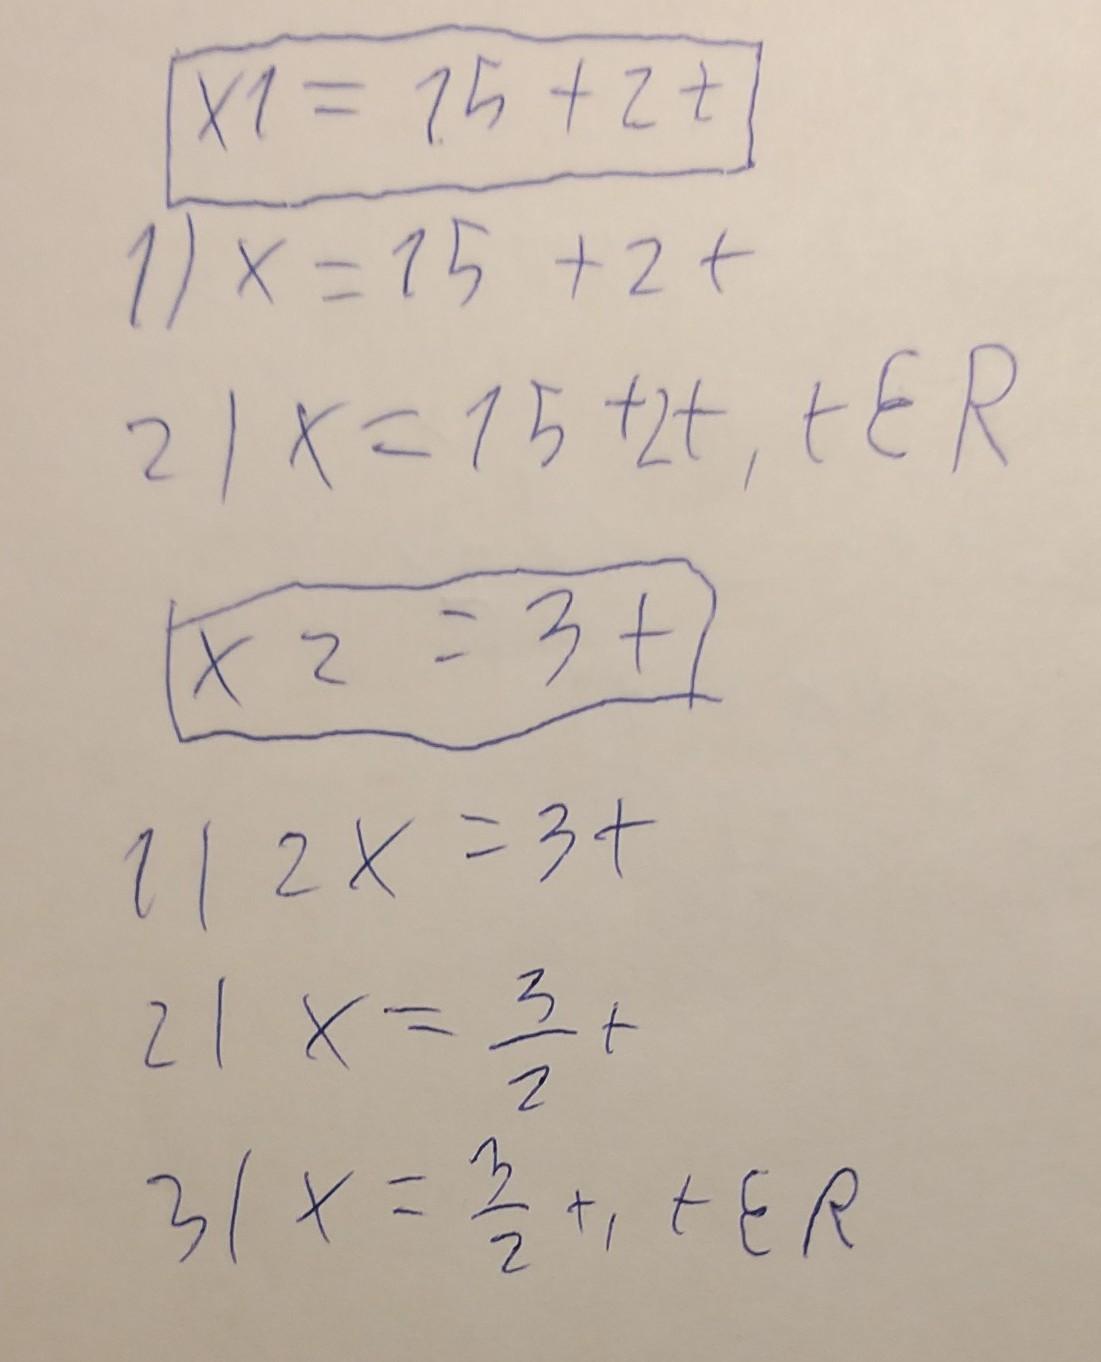 x1 = 15 + 2t
1) x = 15 + 2t
2) x = 15 + 2t, t ∈ R
x2 = 3t
1) 2x = 3t
2) x = 3/2 t
3) x = 3/2 t, t ∈ R